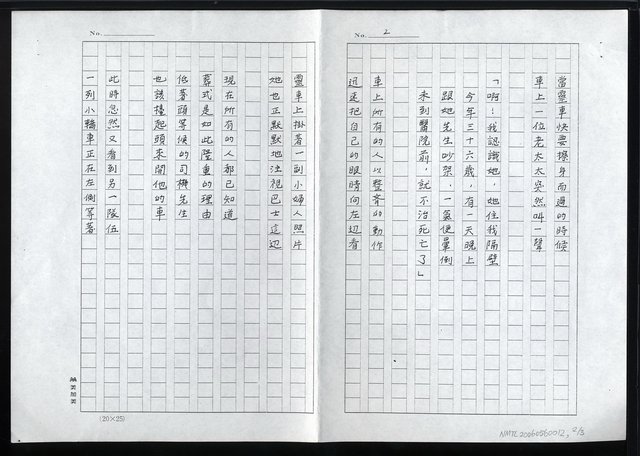 No. 2
當靈車快要擦身而過的時候
車上一位老太太突然叫一聲
「啊!我認識她,她住我隔壁
今年三十六歲,有一天晚上
跟她先生吵架,一氣便暈倒
未到醫院前,就不治死亡了」
車上所有的人以整齊的動作
迅速把自己的眼睛向左邊看
No.
靈車上掛著一副小婦人照片
她也正默默地注視巴士這边
現在所有的人都已知道
葬式是如此隆重的理由
低著頭等候的司機先生
也該擡起頭來開他的車
此時忽然又看到另一隊伍
一列小轎車正在左側等著
(20×25)
NMTL20060560012, 2/3